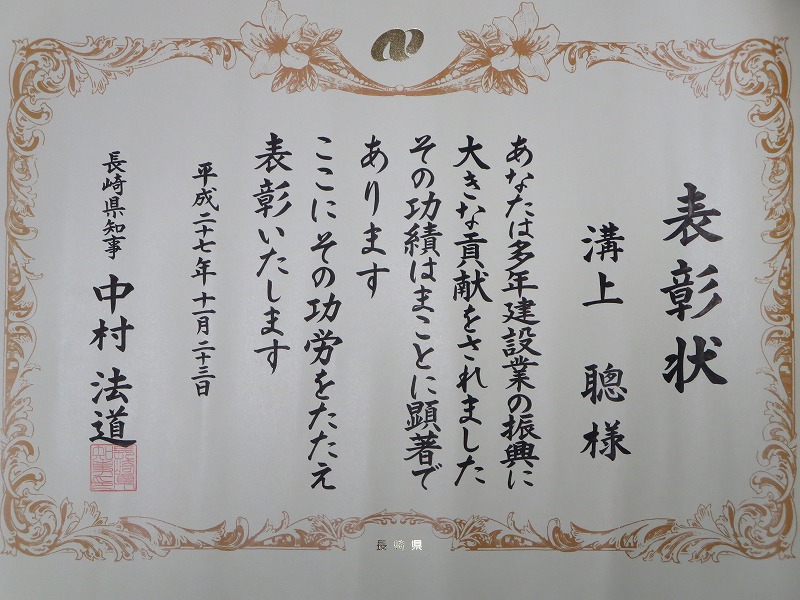 表彰状
溝上 聰 様
あなたは多年建設業の振興に
大きな貢献をされました
その功績はまことに顕著で
あります
ここにその功労をたたえ
表彰いたします
平成二十七年十一月二十三日
長崎県知事 中村 法道
長崎県